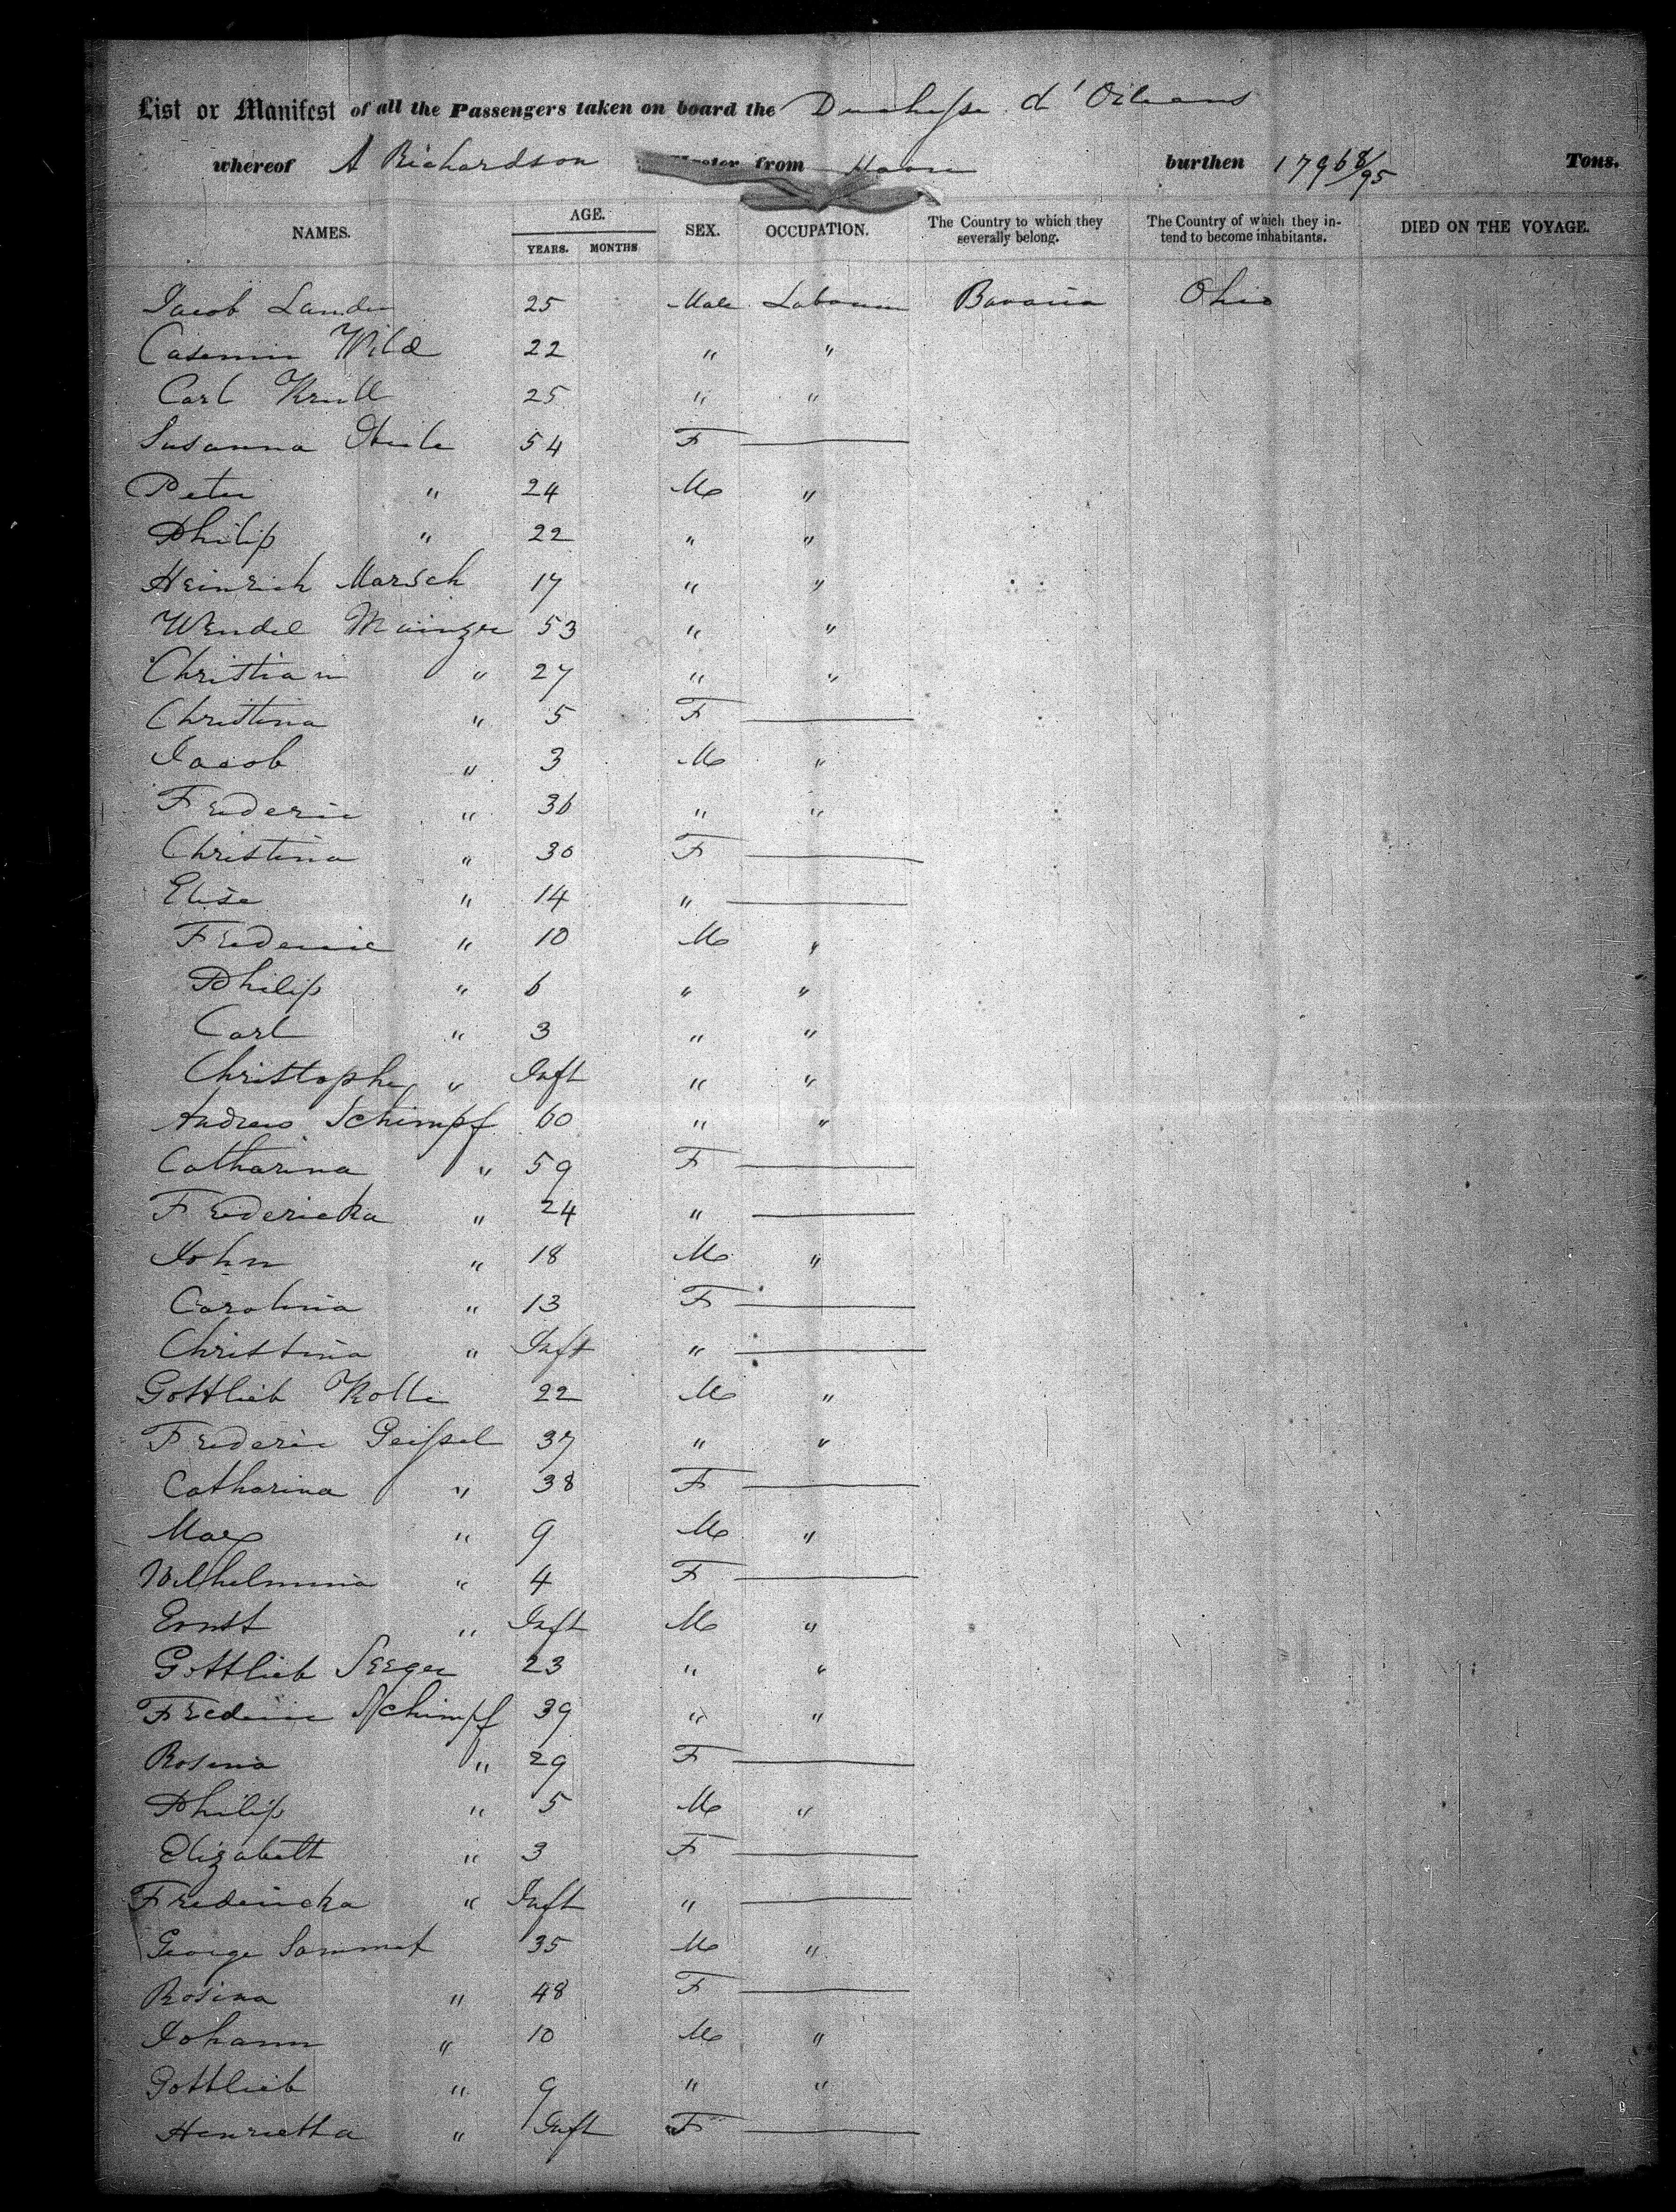 List or Manifest of all the Passengers taken on board the Duchesse d'Orleans
whereof A Richardson Master from Havre burthen 1796 8/95 Tons.
NAMES. AGE. YEARS. MONTHS SEX. OCCUPATION. The Country to which they severally belong. The Country of which they intend to become inhabitants. DIED ON THE VOYAGE.
Jacob 25 Male Labourer Bavaria Ohio
Wild 22 " "
Carl Krull 25 " "
Susanna 54 F
Peter " 24 M "
Philip " 22 " "
Heinrich Marsch 17 " "
Wendel Mainzer 53 " "
Christian " 27 " "
Christina " 5 F
Jacob " 3 M "
Frederic " 36 " "
Christina " 30 F
Elise " 14 "
Frederic " 10 M "
Philip " 6 " "
Carl " 3 " "
Christopher " Inft " "
Andreas Schimpf 60 " "
Catharina " 59 F
Fredericka " 24 "
John " 18 M "
Carolina " 13 F
Christina " Inft "
Gottlieb Kolle 22 M "
Frederic Geissel 37 " "
Catharina " 38 F
Max " 9 M "
Wilhelmina " 4 F
Ernst " Inft M "
Gottlieb Seeger 23 " "
Frederic Schimpf 39 " "
Rosina " 29 F
Philip " 5 M "
Elizabeth " 3 F
Fredericka " Inft "
George Sammet 35 M "
Rosina " 48 F
Johann " 10 M "
Gottlieb " 9 " "
Henrietta " Inft F